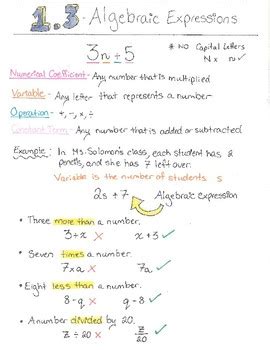 1.3 - Algebraic Expressions
3n ÷ 5
* NO Capital Letters
N x n ✓
Numerical Coefficient - Any number that is multiplied
Variable - Any letter that represents a number
Operation - +, -, ×, ÷
Constant Term - Any number that is added or subtracted
Example: In Ms. Solomon's class, each student has 2
pencils, and she has 7 left over.
Variable is the number of students: s
2s + 7
Algebraic Expression
• Three more than a number.
3+x ✗ x+3 ✓
• Seven times a number.
7×a ✗ 7a ✓
• Eight less than a number.
8-q ✗ q-8 ✓
• A number divided by 20.
z ÷ 20 ✗ z/20 ✓